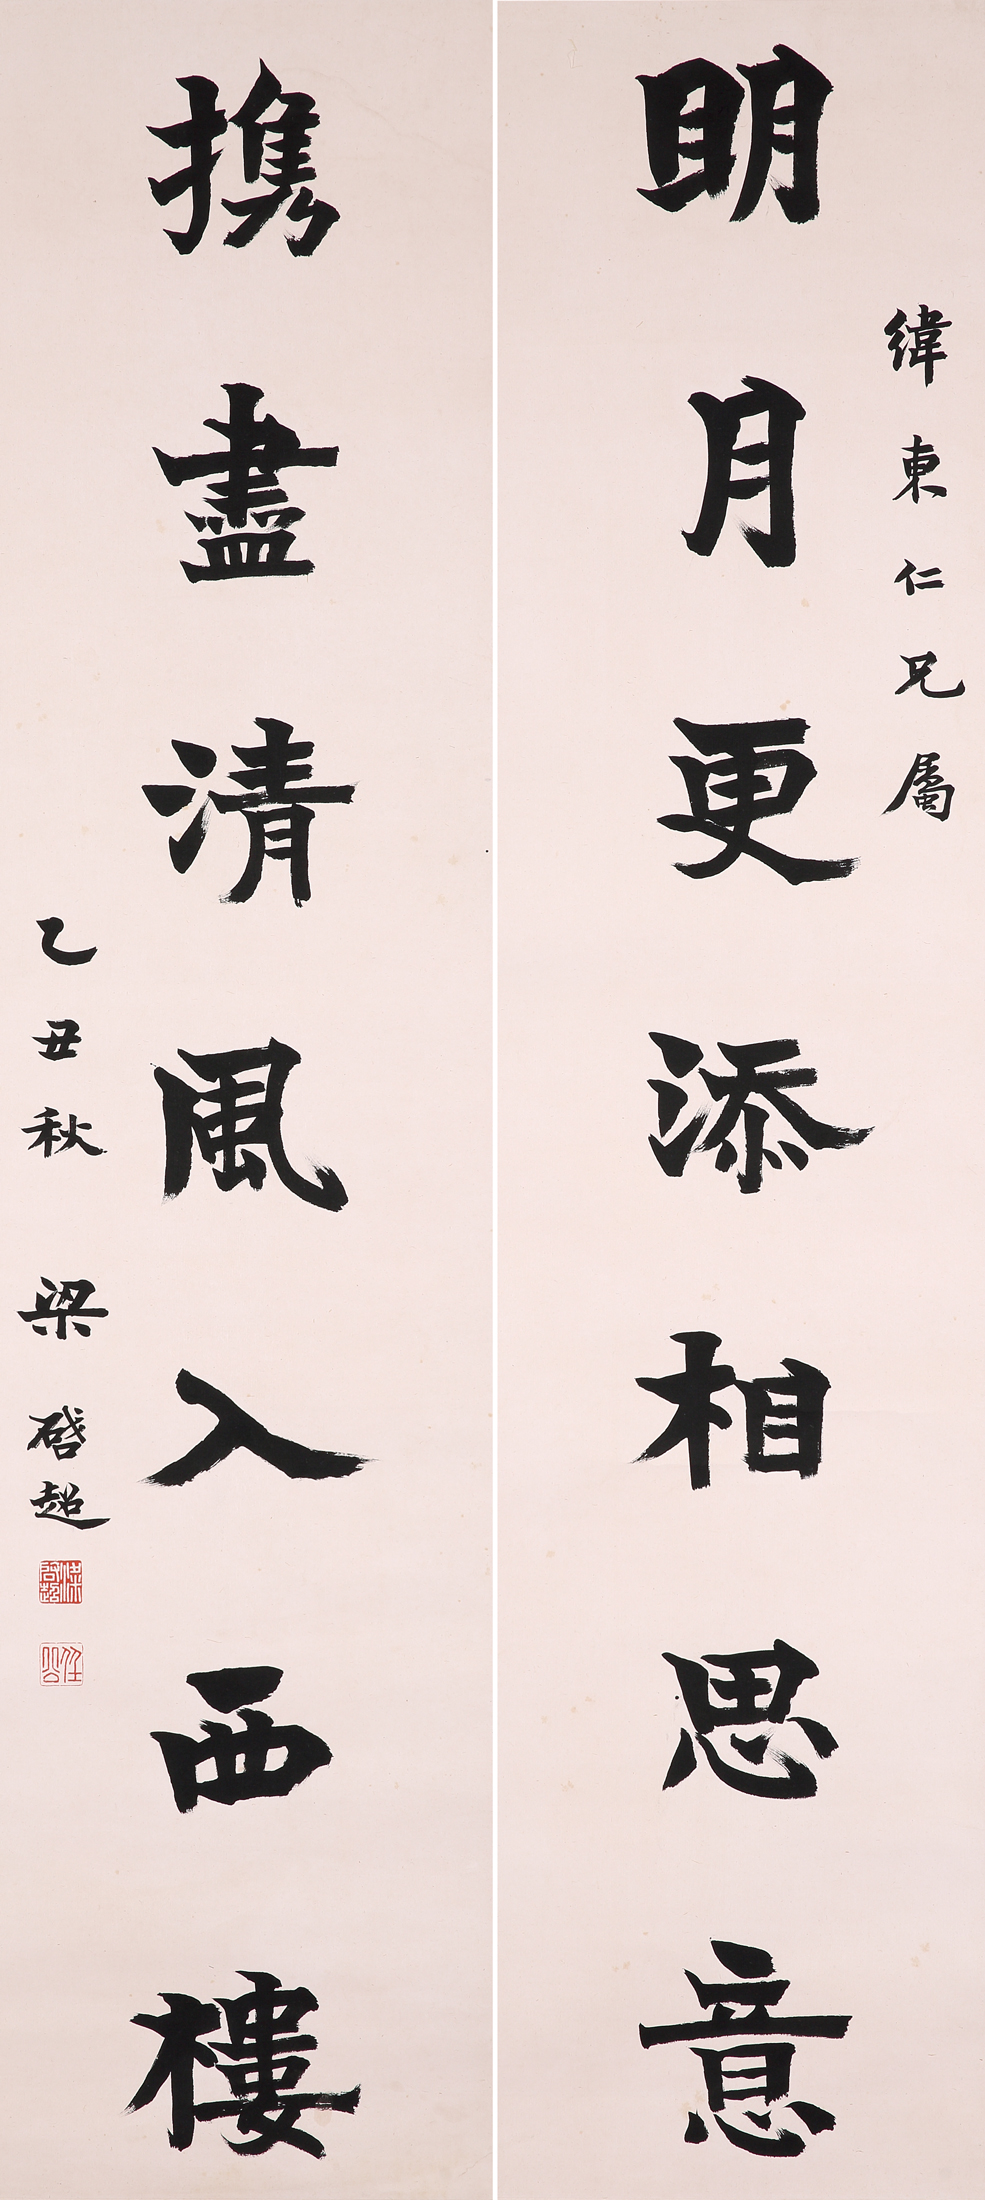 緯東仁兄屬
明月更添相思意
攜盡清風入西樓
乙丑秋 梁啓超
梁啓超
任公